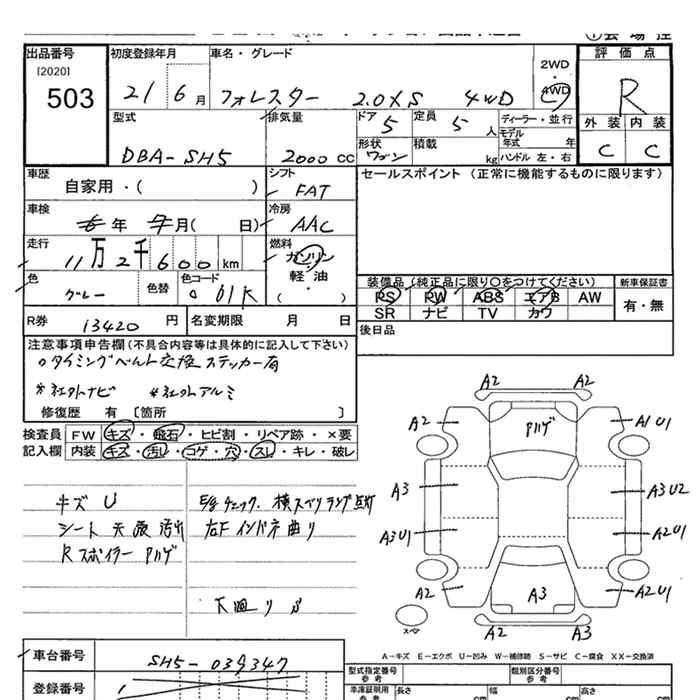 出品番号 初度登録年月 車名・グレード
[2020] 503
21 6月 フォレスター 2.0XS 4WD
2WD・4WD
評価点
R
外装 内装
C C
型式 DBA-SH5
排気量 2000cc
ドア 5
定員 5人
ディーラー・並行
モデル年式 年
形状 ワゴン
積載 kg
ハンドル 左・右
車歴 自家用・( )
シフト FAT
セールスポイント (正常に機能するものに限ります)
車検 年 月( 日)
冷房 AAC
走行 11万2千600km
燃料 ガソリン・軽油
( )
色 グレー 色替 色コード 61K
装備品 (純正品に限り○をつけてください) 新車保証書
PS PW ABS エアB AW 有・無
SR ナビ TV カワ
R券 13420円 名変期限 月 日
後日品
注意事項申告欄(不具合内容等は具体的に記入して下さい)
○タイミングベルト交換ステッカー有
※社外ナビ ※社外アルミ
修復歴 有 [箇所 ]
検査員記入欄
FW キズ・飛石・ヒビ割・リペア跡・×要
内装 キズ・汚れ・コゲ・穴・スレ・キレ・破レ
キズ U
シート 天張 汚れ
Rスポイラー Pハゲ
E/gチェック、横スベリランプ点灯
左Fインドネ曲り
下廻り サビ
A2 A2
A2 Pハゲ A1 U1
A3 A3 U2
A3 U1 A2 U1
A2 A3 A2 U1
A2 A3
スペア
A-キズ E-エクボ U-凹み W-補修跡 S-サビ C-腐食 XX-交換済
車台番号 SH5-039347
登録番号
型式指定番号 参考
類別区分番号 参考
車庫証明用 参考 長さ cm 幅 cm 高さ cm